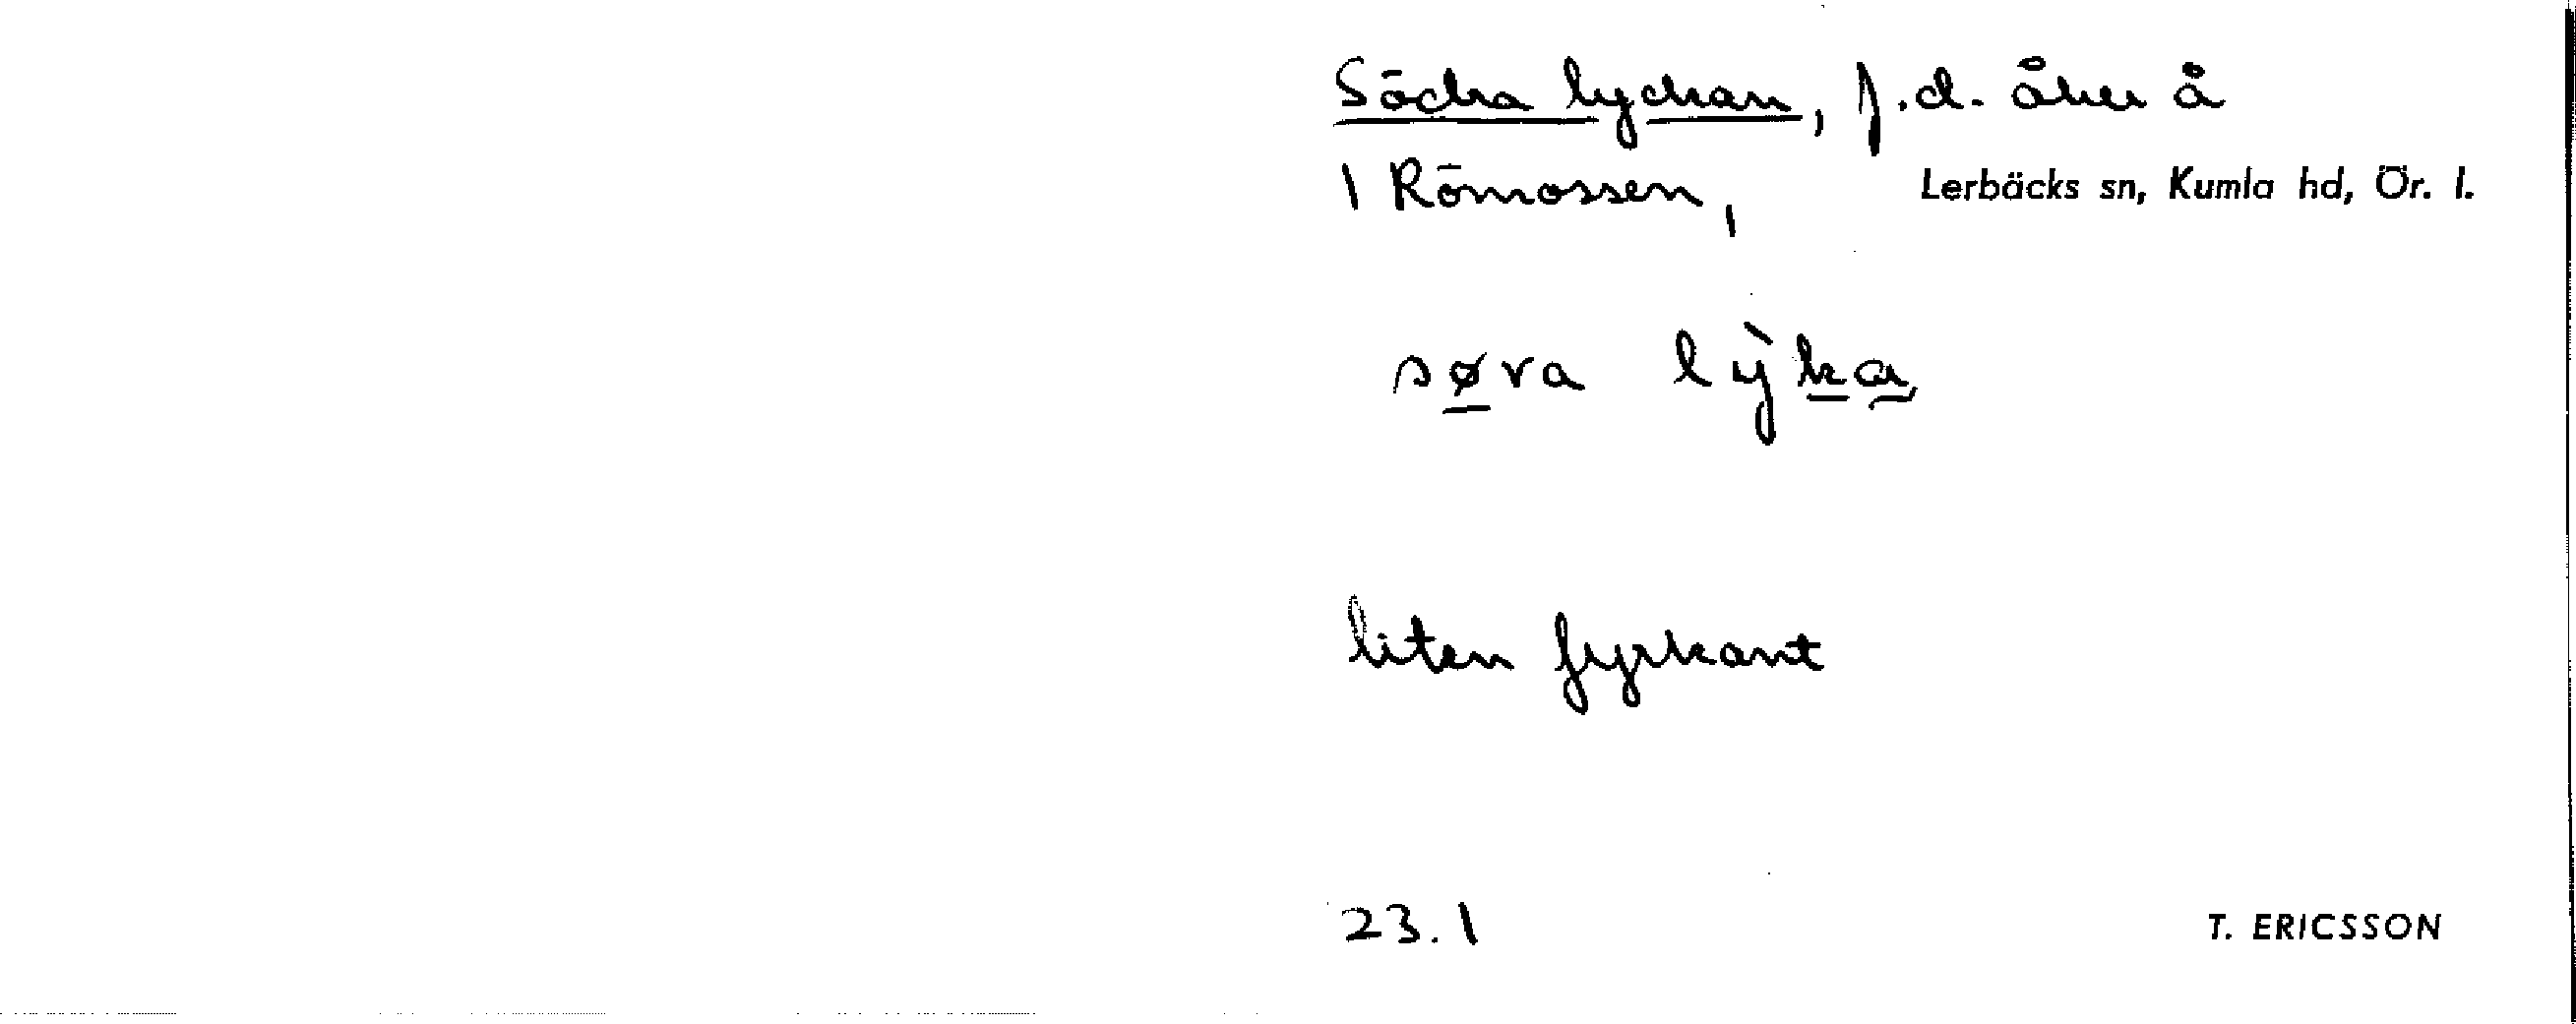 Södra lyckan, f.d. åker å
1 Römossen, Lerbäcks sn, Kumla hd, Ör. l.
søva lỳka
liten fyrkant
23.1 T. ERICSSON